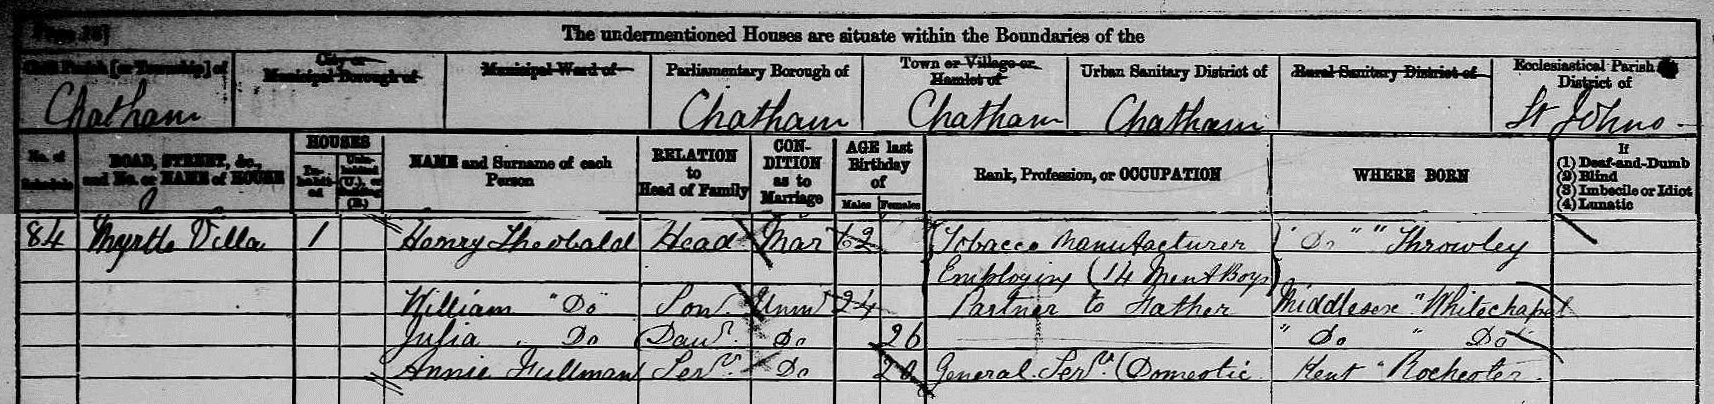 The undermentioned Houses are situate within the Boundaries of the
Civil Parish [or Township] of City or Municipal Borough of Municipal Ward of Parliamentary Borough of Town or Village or Hamlet of Urban Sanitary District of Rural Sanitary District of Ecclesiastical Parish District of
Chatham Chatham Chatham Chatham St Johns
No. of Schedule ROAD, STREET, &c., and No. or NAME of HOUSE HOUSES Inhabited Uninhabited (U.), or (B.) NAME and Surname of each Person RELATION to Head of Family CONDITION as to Marriage AGE last Birthday of Males Females Rank, Profession, or OCCUPATION WHERE BORN If (1) Deaf-and-Dumb (2) Blind (3) Imbecile or Idiot (4) Lunatic
84 Myrtle Villa 1 Henry Theobald Head Mar 62 Tobacco Manufacturer " Do " " Throwley
Employing (14 Men & Boys)
William " Do Son Unm 24 Partner to Father Middlesex " Whitechapel
Julia " Do Daur Do 26 " Do " Do
Annie Fullman Servt Do 20 General Servt (Domestic Kent " Rochester